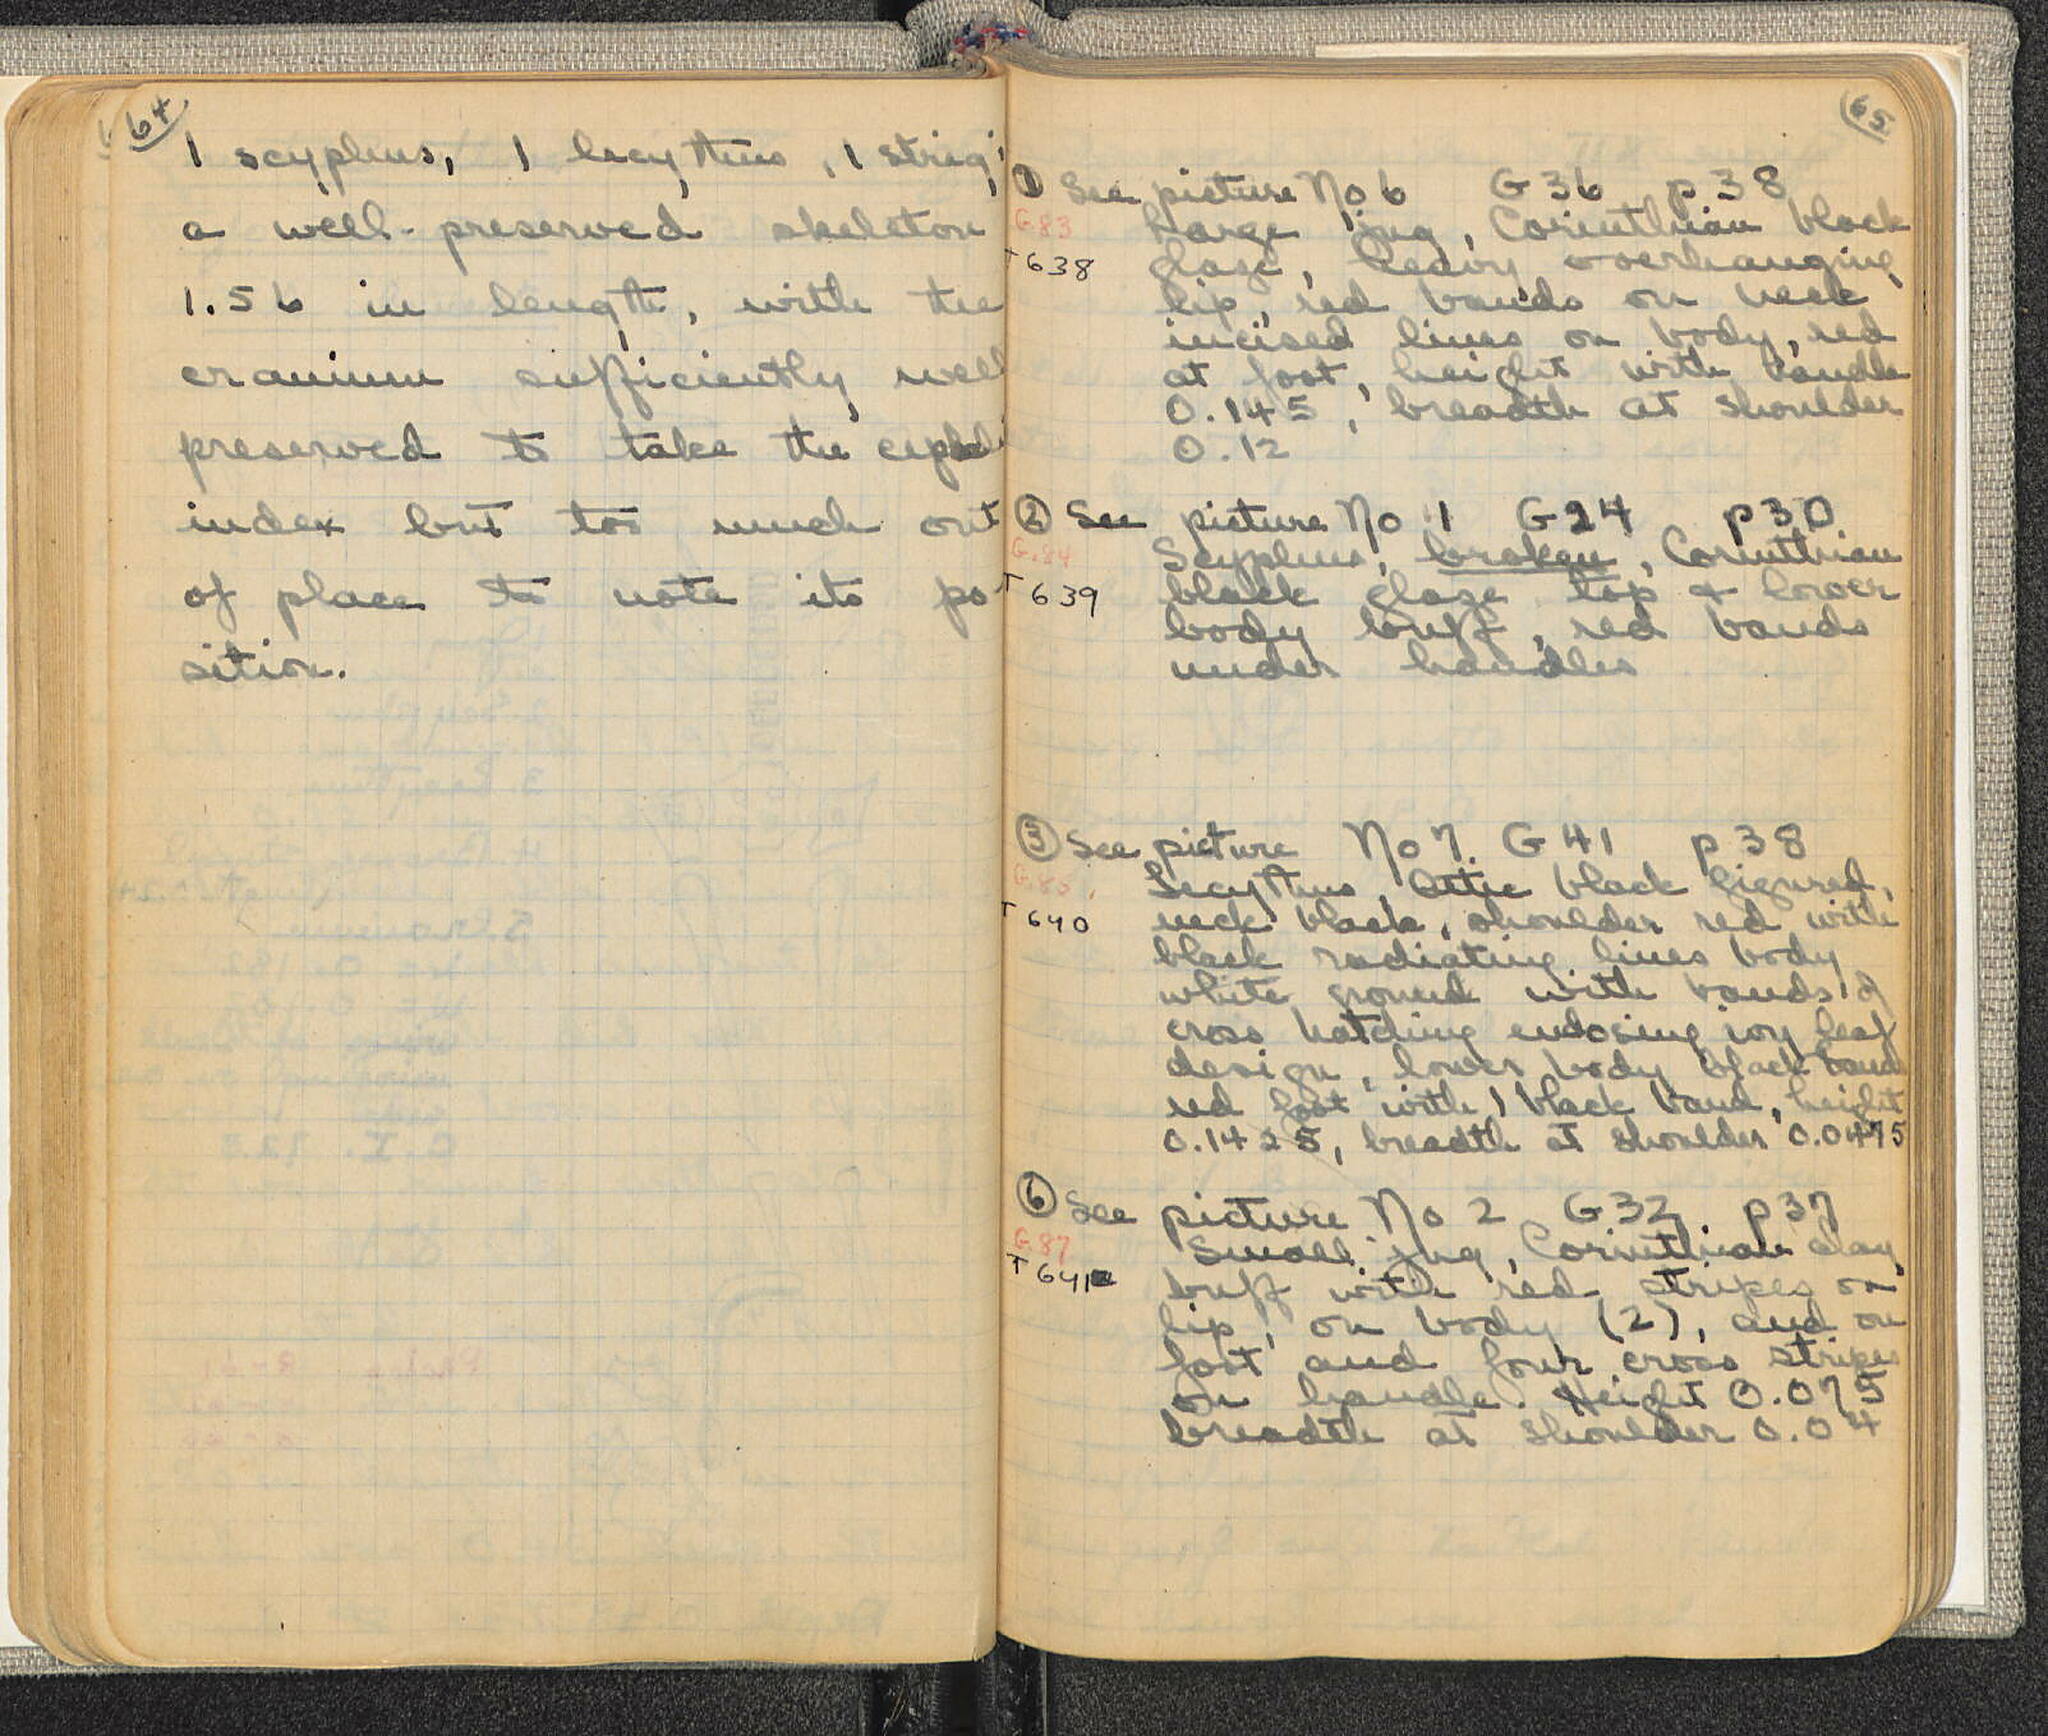 64
1 scyphus, 1 lecythus, 1 strigi
a well-preserved skeleton
1.56 in length, with the
cranium sufficiently well
preserved to take the
index but too much out
of place to note its po-
sition.
65
① See picture No 6 G36 p38
G.83 Large jug, Corinthian black
T638 glaze, heavy overhanging
lip, red bands on neck
incised lines on body, red
at foot, height with handle
0.145, breadth at shoulder
0.12
② See picture No 1 G24 p30
G.84 Scyphus, broken, Corinthian
T639 black glaze top & lower
body buff, red bands
under handles
③ See picture No 7. G41 p38
G.85. Lecythus, Attic black figured,
T640 neck black, shoulder red with
black radiating lines body
white ground with bands of
cross hatching enclosing ivy leaf
design, lower body black band
red foot with 1 black band, height
0.1425, breadth at shoulder 0.0475
⑥ See picture No 2 G32. p37
G.87 Small jug, Corinthian clay
T641 buff with red stripes on
lip, on body (2), and on
foot and four cross stripes
on handle. Height 0.075
breadth at shoulder 0.04